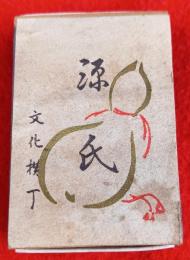 源氏
文化横丁